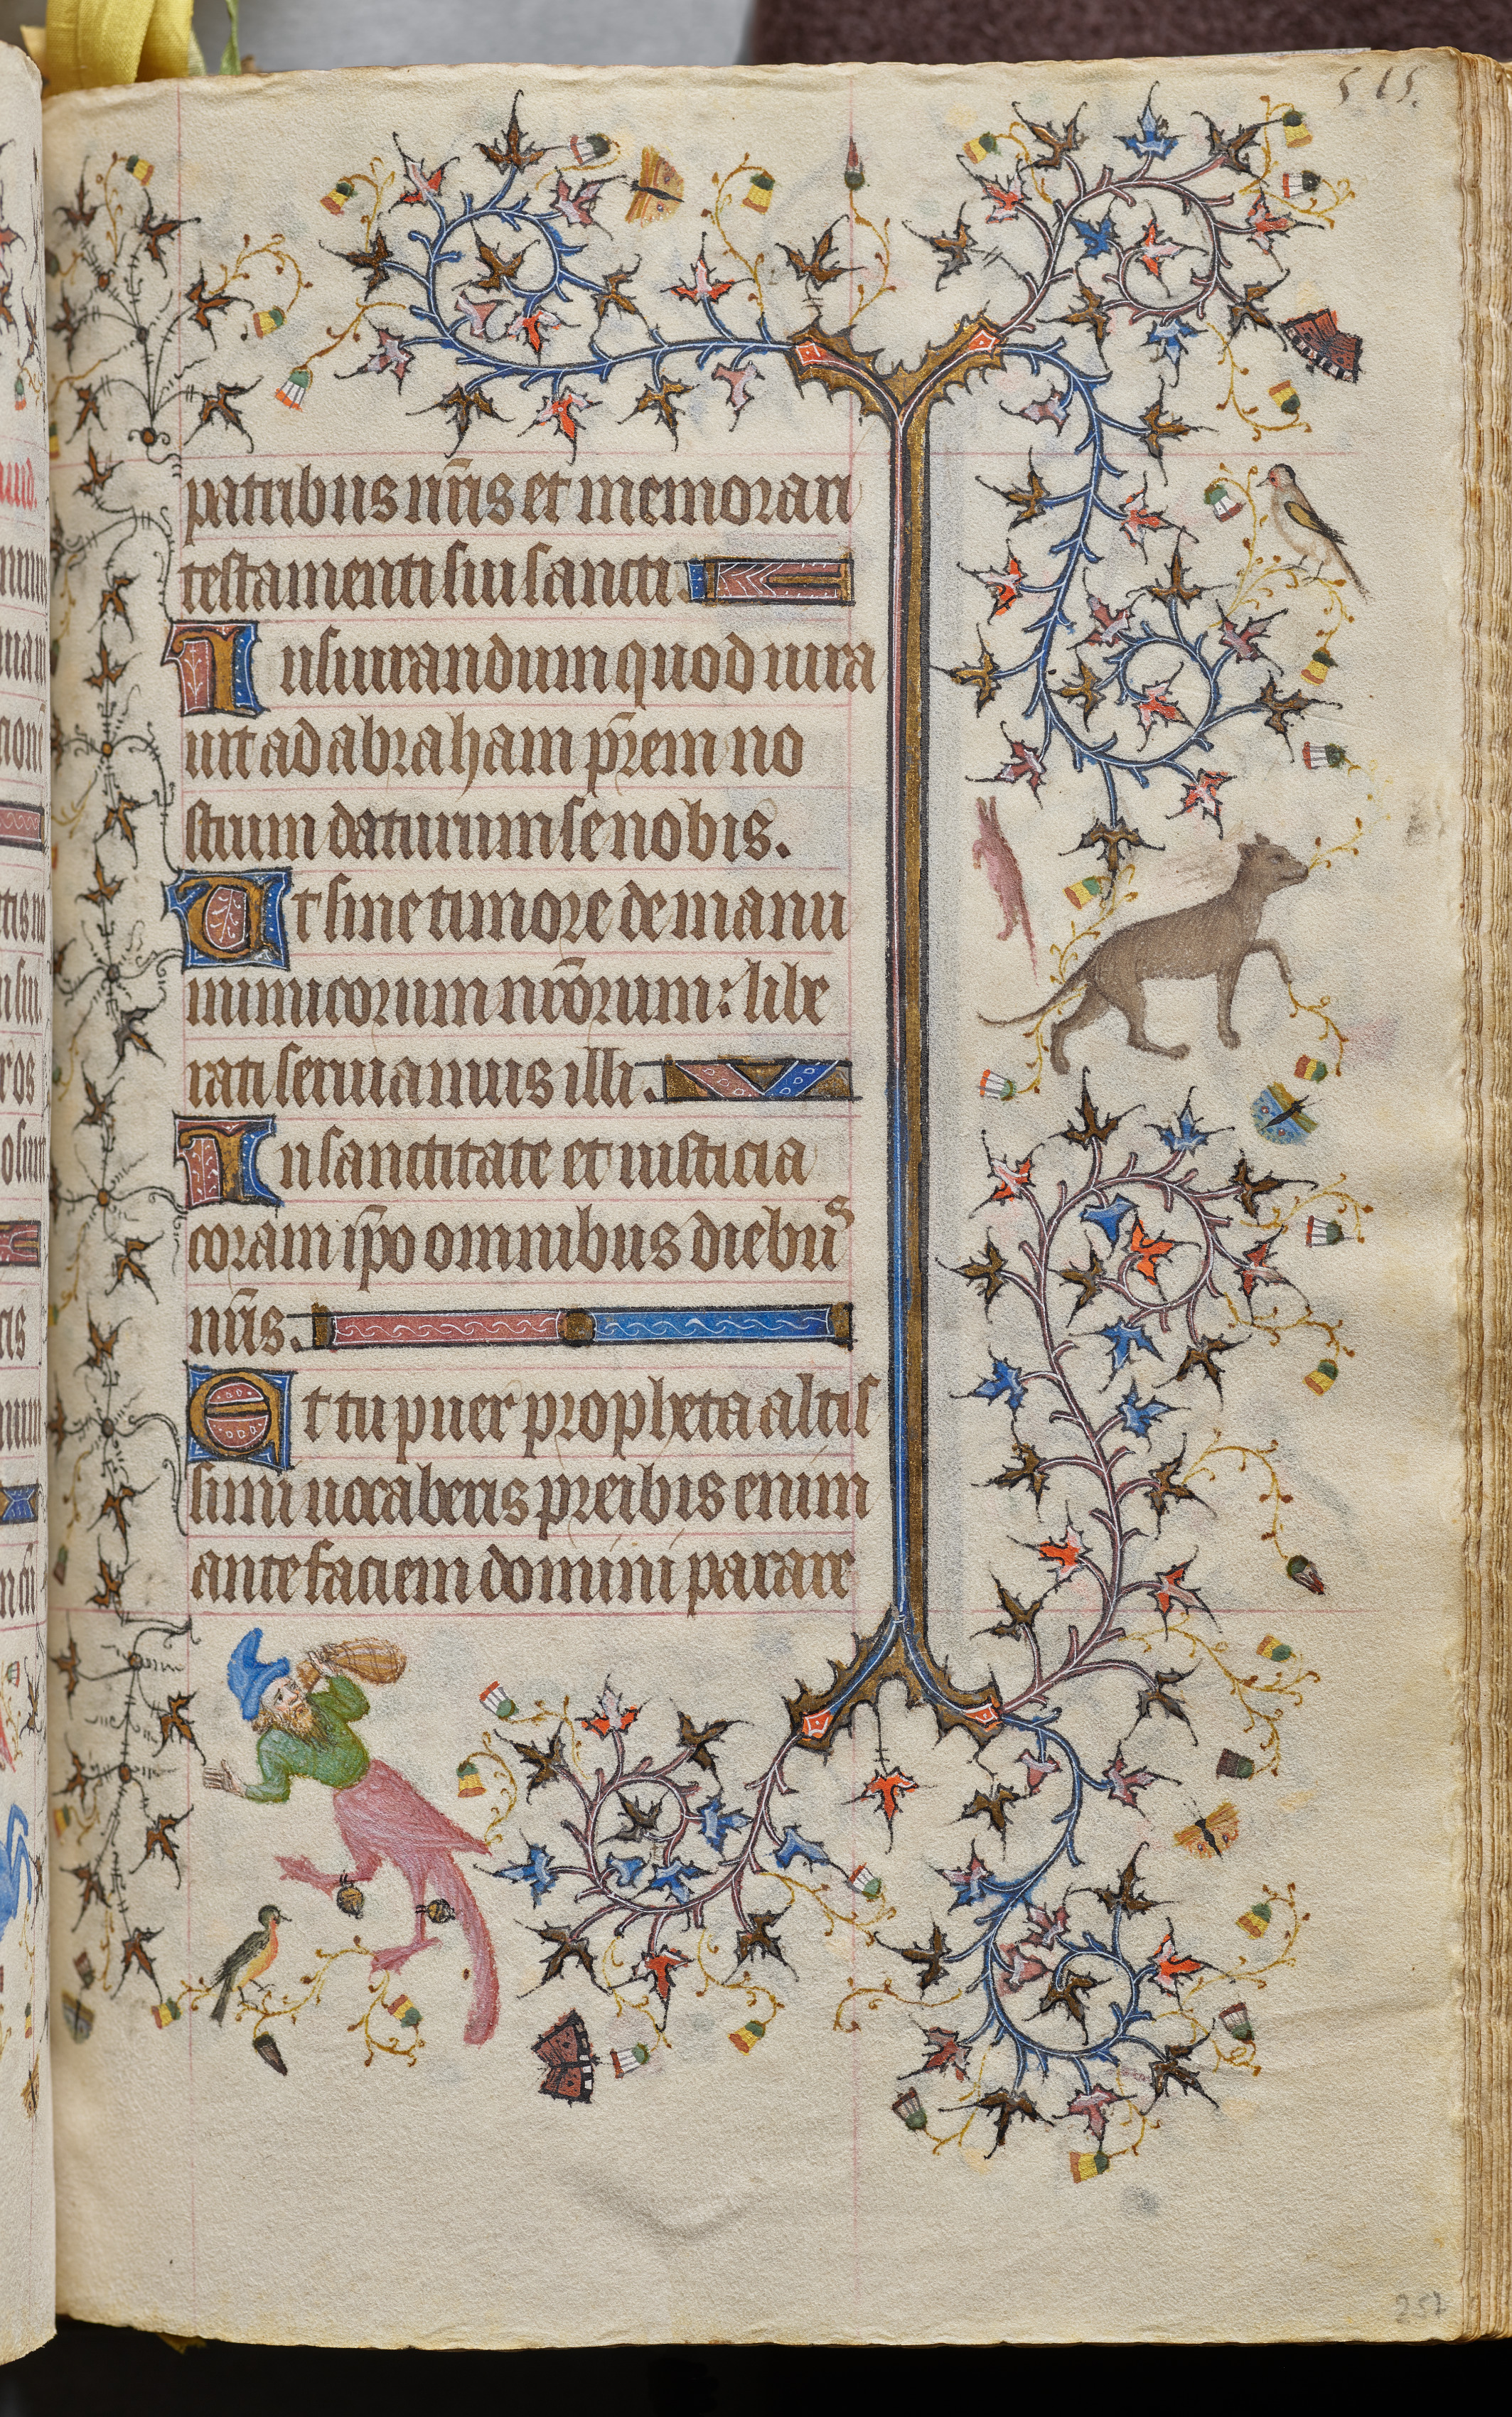 515.
patribus nr̄is et memorari
testamenti sui sancti.
Iusiurandum quod iura
uit ad abraham pr̄em no
strum daturum se nobis.
Ut sine timore de manu
inimicorum nrōrum: libe
rati seruiamus illi.
In sanctitate et iusticia
coram ip̄o omnibus diebus
nr̄is.
Et tu puer propheta altis
simi uocaberis preibis enim
ante faciem domini parare
257